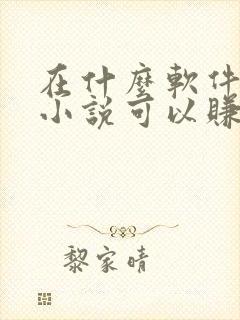 在什麼軟件
小說可以賺
黎家晴